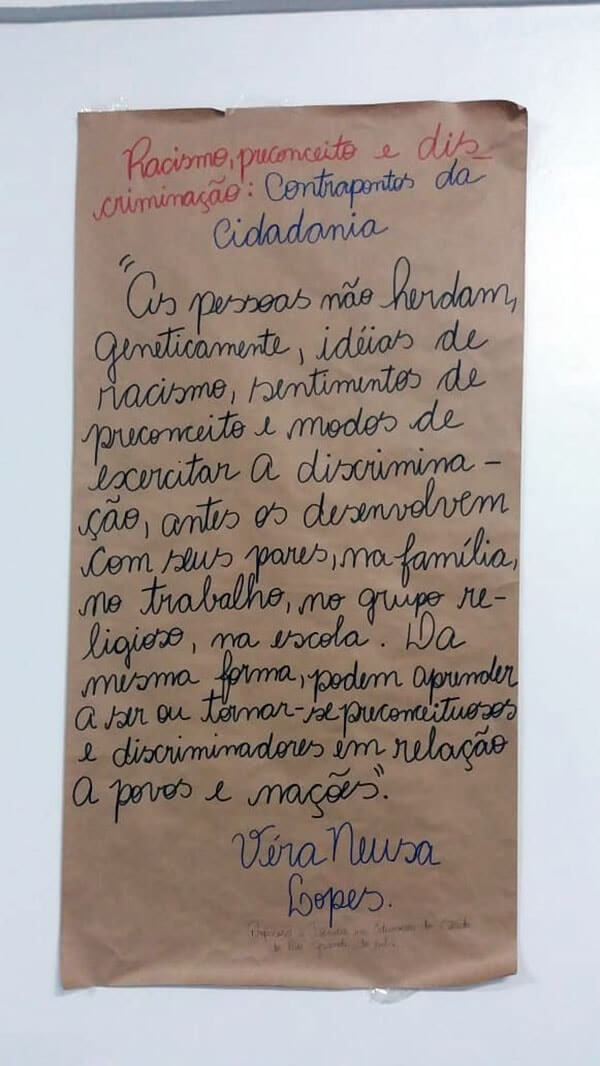 Racismo, preconceito e dis-
criminação: Contrapontos da
Cidadania
"As pessoas não herdam,
geneticamente, idéias de
racismo, sentimentos de
preconceito e modos de
exercitar a discrimina-
ção, antes os desenvolvem
com seus pares, na família,
no trabalho, no grupo re-
ligioso, na escola. Da
mesma forma, podem aprender
a ser ou tornar-se preconceituosos
e discriminadores em relação
a povos e nações".
Véra Neusa
Lopes.
da Educação do Estado
do Rio Grande do Sul.